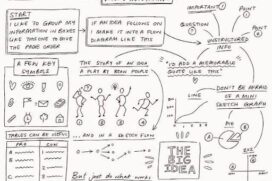 START
I LIKE TO GROUP MY
INFORMATION IN BOXES
LIKE THIS ONE TO GIVE
THE PAGE ORDER
IF AN IDEA FOLLOWS ON
I MAKE IT INTO A FLOW
DIAGRAM LIKE THIS
IMPORTANT
QUESTION
POINT
POINT
UNSTRUCTURED
INFO
A FEW KEY
SYMBOLS
THE STORY OF AN IDEA
A PLAY BY BEAN PEOPLE
"I'D ADD A MEMORABLE
QUOTE LIKE THIS"
LINE
DON'T BE AFRAID
OF A MINI
SKETCH GRAPH
PIE
TABLES CAN BE USEFUL
PRO
CON
...AND IN A SKETCH FLOW
But just do what works
THE
BIG
IDEA
2x2